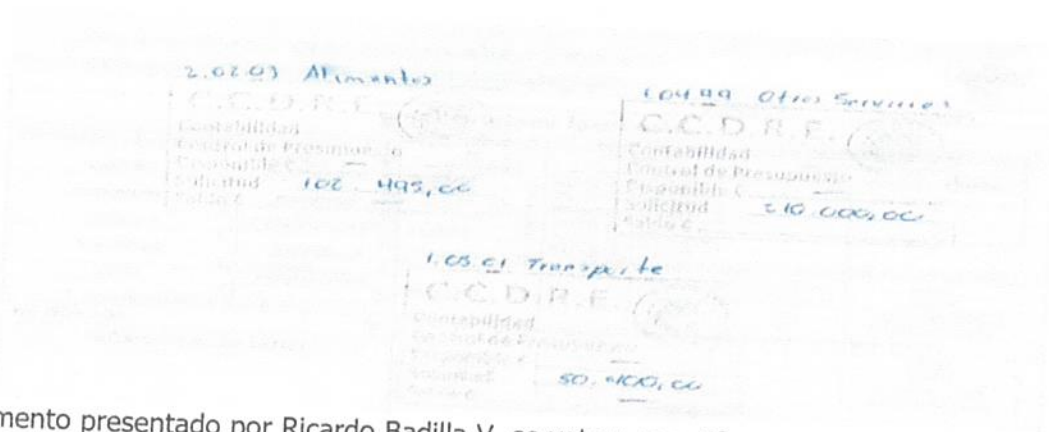 2.02.03 Alimentos
C.C.D.R.E.
Contabilidad
Control de Presupuesto
Disponible ¢
Solicitud 102 495,00
Saldo ¢
1.04.99 Otros Servicios
C.C.D.R.E.
Contabilidad
Control de Presupuesto
Disponible ¢
Solicitud 210.000,00
Saldo ¢
1.05.01 Transporte
C.C.D.R.E.
Contabilidad
Control de Presupuesto
Disponible ¢
Solicitud 50.400,00
Saldo ¢
mento presentado por Ricardo Badilla V.